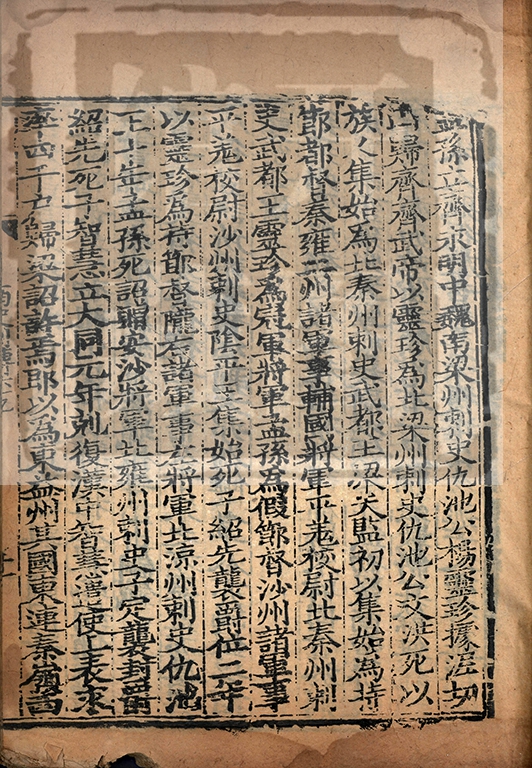 孟孫立齊永明中魏南梁州刺史仇池公楊靈珍據泥功
山歸齊齊武帝以靈珍為北梁州刺史仇池公文洪死以
族人集始為北秦州刺史武都王梁天監初以集始為持
節都督秦雍二州諸軍事輔國將軍平羌校尉北秦州刺
史武都王靈珍為冠軍將軍孟孫為假節督沙州諸軍事
平羌校尉沙州刺史陰平王集始死子紹先襲爵位二年
以靈珍為持節督隴右諸軍事左將軍北涼州刺史仇池
王十年孟孫死詔贈安沙將軍北雍州刺史子定襲封爵
紹先死子智慧立大同元年剋復漢中智慧遣使上表求
率四千戶歸梁詔許焉即以為東益州其國東連秦嶺西